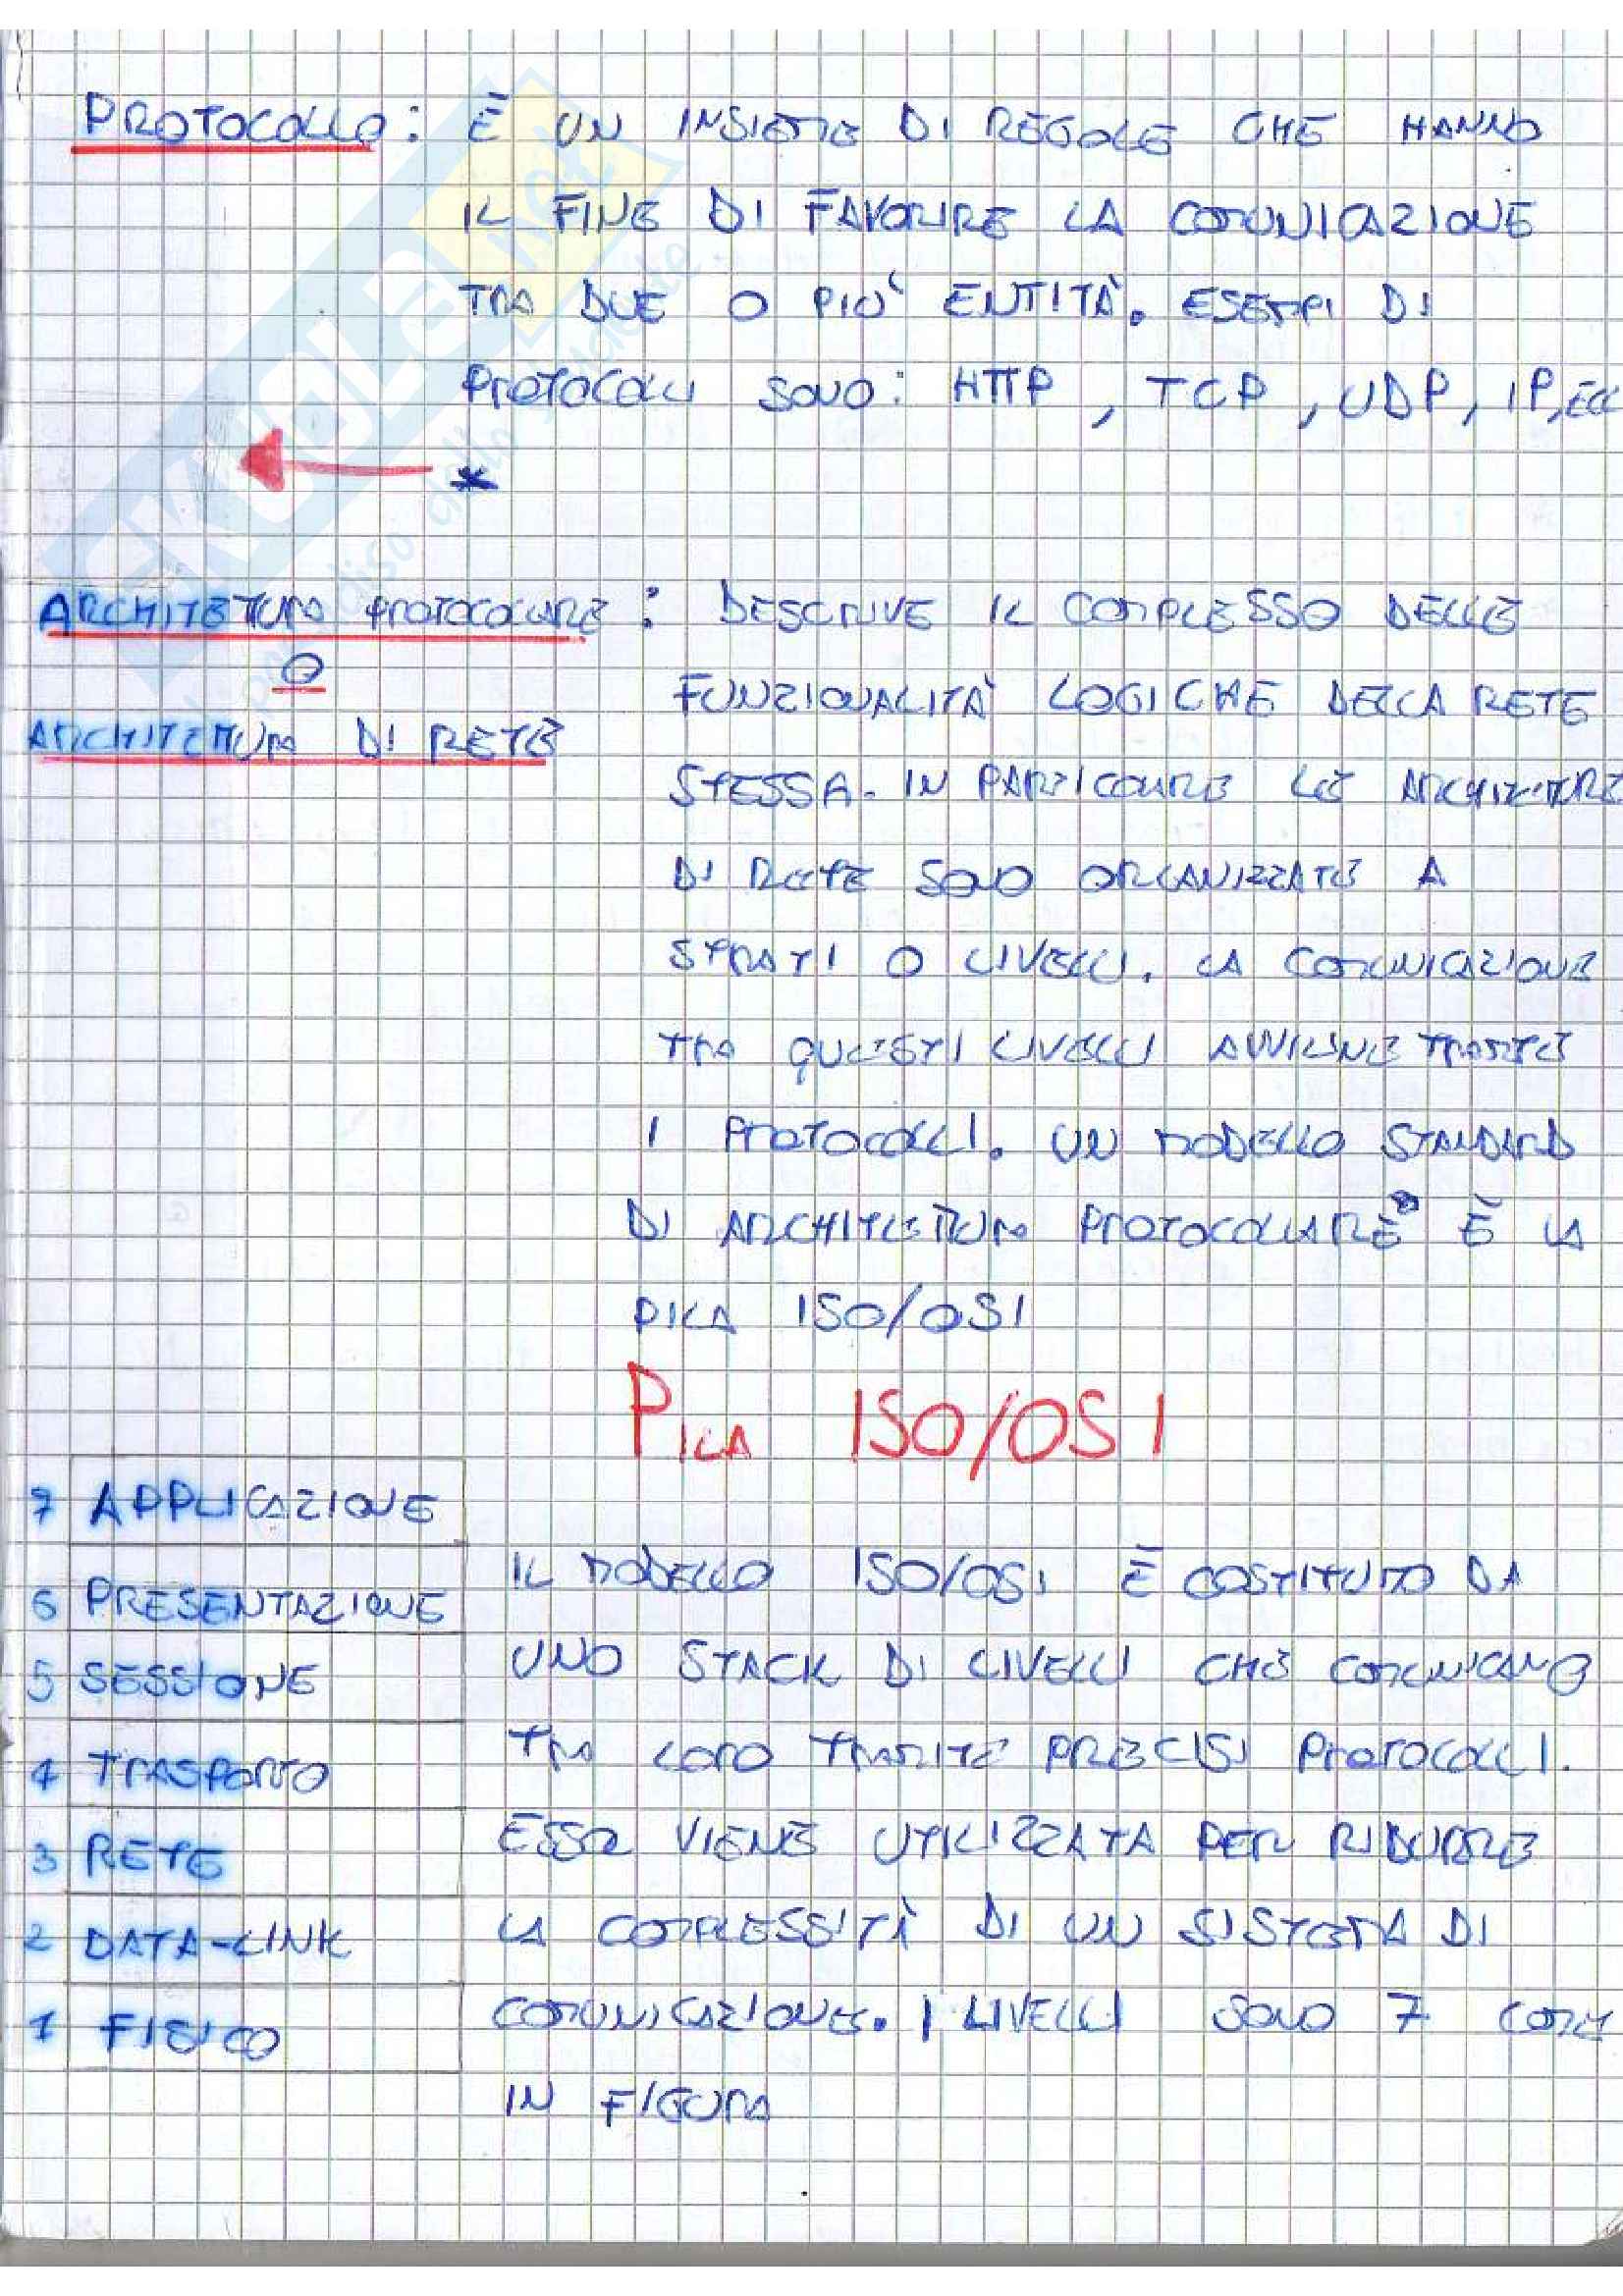 PROTOCOLLO: È UN INSIEME DI REGOLE CHE HANNO
IL FINE DI FAVORIRE LA COMUNICAZIONE
TRA DUE O PIÙ ENTITÀ. ESEMPI DI
PROTOCOLLI SONO: HTTP, TCP, UDP, IP, ECC
*
ARCHITETTURA PROTOCOLLARE: DESCRIVE IL COMPLESSO DELLE
O
ARCHITETTURA DI RETE
FUNZIONALITÀ LOGICHE DELLA RETE
STESSA. IN PARTICOLARE LE ARCHITETTURE
DI RETE SONO ORGANIZZATE A
STRATI O LIVELLI. LA COMUNICAZIONE
TRA QUESTI LIVELLI AVVIENE TRAMITE
I PROTOCOLLI. UN MODELLO STANDARD
DI ARCHITETTURA PROTOCOLLARE È LA
PILA ISO/OSI
PILA ISO/OSI
7 APPLICAZIONE
6 PRESENTAZIONE
5 SESSIONE
4 TRASPORTO
3 RETE
2 DATA-LINK
1 FISICO
IL MODELLO ISO/OSI È COSTITUITO DA
UNO STACK DI LIVELLI CHE COMUNICANO
TRA LORO TRAMITE PRECISI PROTOCOLLI.
ESSA VIENE UTILIZZATA PER RIDURRE
LA COMPLESSITÀ DI UN SISTEMA DI
COMUNICAZIONE. I LIVELLI SONO 7 COME
IN FIGURA
SKUOLA.net
paradiso dello studente